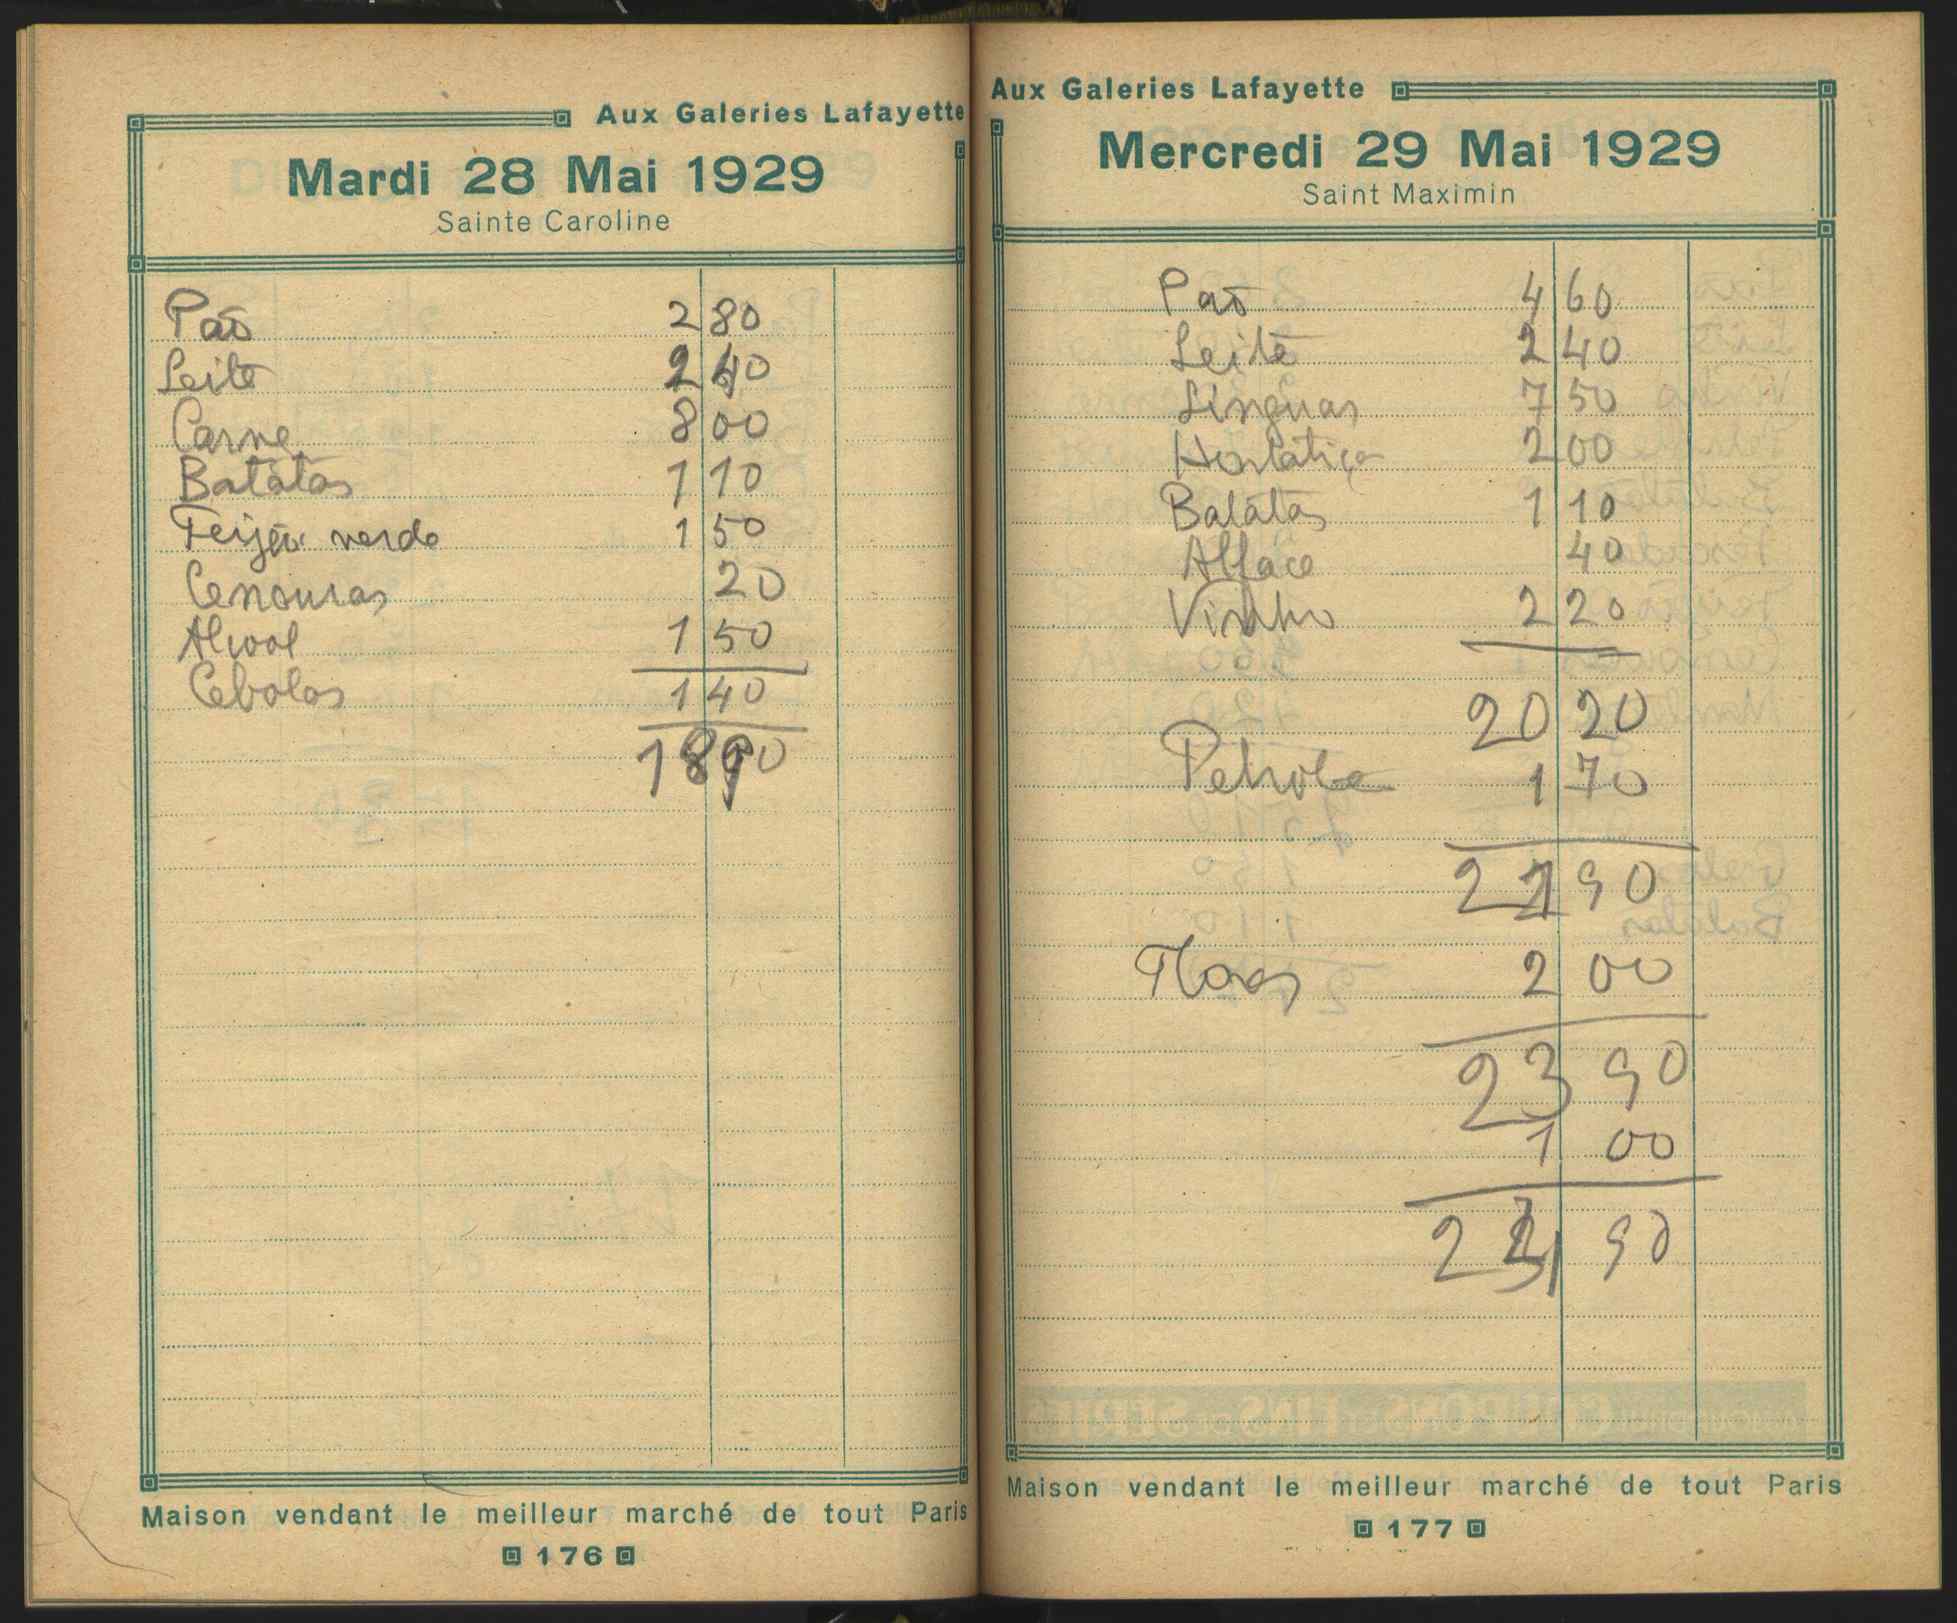 Aux Galeries Lafayette
Mardi 28 Mai 1929
Sainte Caroline
Pão 2 80
Leite 2 40
Carne 8 00
Batatas 1 10
Feijão verde 1 50
Cenouras 20
Alcool 1 50
Cebolas 1 40
18 90
Maison vendant le meilleur marché de tout Paris
176
Aux Galeries Lafayette
Mercredi 29 Mai 1929
Saint Maximin
Pão 4 60
Leite 2 40
Linguas 7 50
Hortatiça 2 00
Batatas 1 10
Alface 40
Vinho 2 20
20 20
Petrole 1 70
21 90
Flores 2 00
23 90
1 00
24 90
Maison vendant le meilleur marché de tout Paris
177